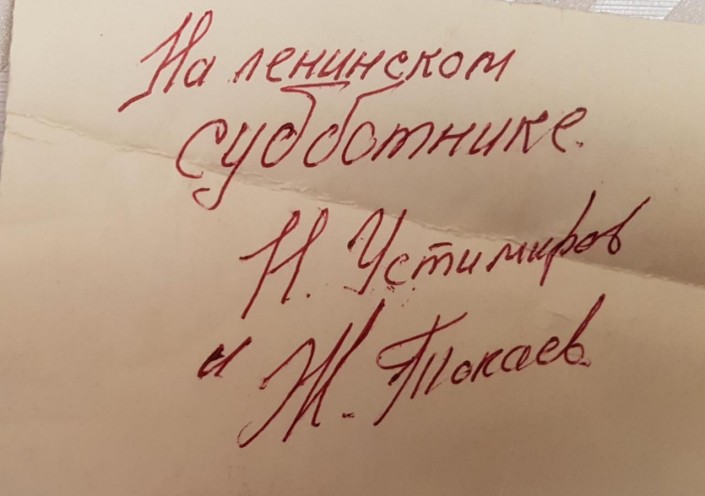 На ленинском
субботнике.
Н. Устимиров
и Ж. Токаев.